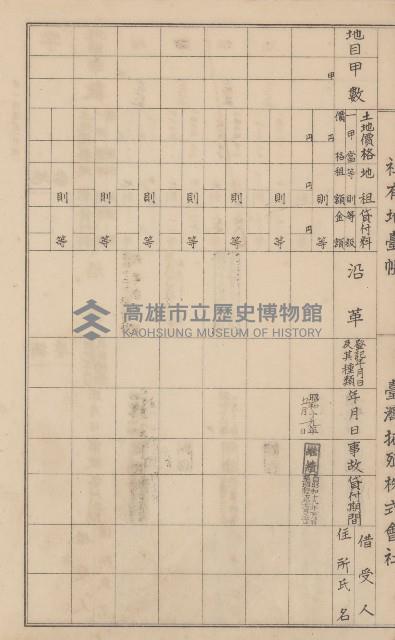 社有地臺帳
臺灣拓殖株式會社
地目甲數
甲
土地價格
一甲當
價格
円
円
地租
等則
租額
則
等
円
円
貸付料
等級
金額
則
等
則
等
則
等
則
等
則
等
則
等
沿革
登記年月日
及其種類
年月日
昭和十九年
五月一日
事故
繼續
貸付期間
借受人
住所氏名
高雄市立歷史博物館
KAOHSIUNG MUSEUM OF HISTORY